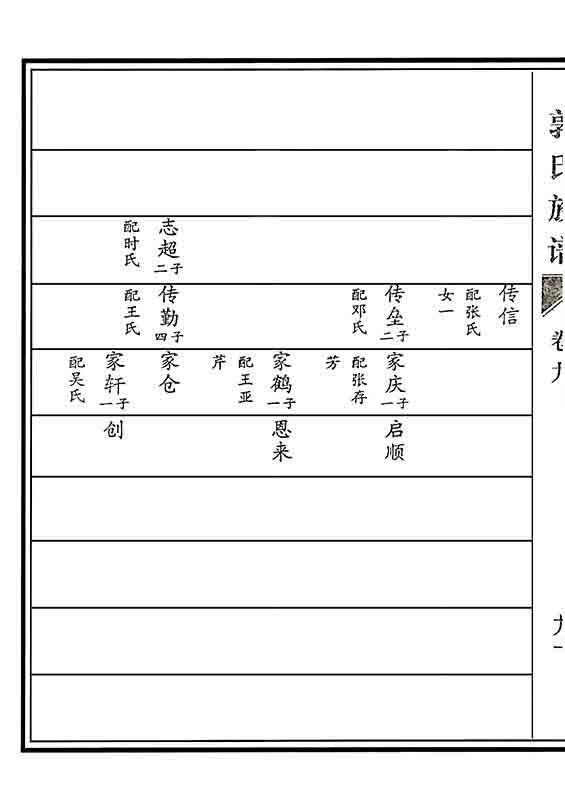 郭氏族谱
卷九
九一
志超二子
配时氏
传信
配张氏
女一
传垒二子
配邓氏
传勤四子
配王氏
家庆一子
配张存
芳
家鹤一子
配王亚
芹
家仓
家轩一子
配吴氏
启顺
恩来
创